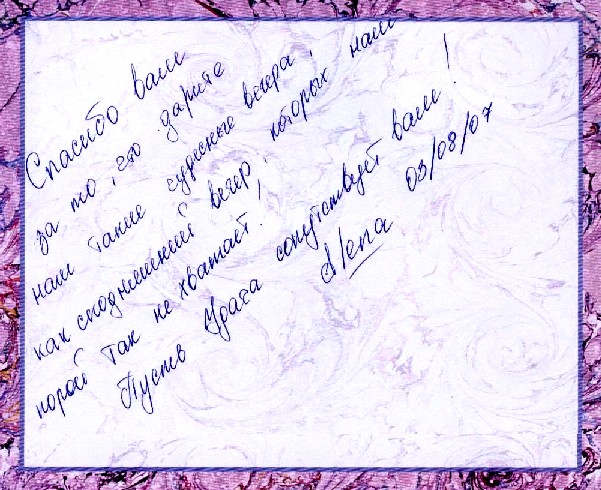 Спасибо вам
за то, что дарите
нам такие чудесные вечера,
как сегодняшний вечер, которых нам
порой так не хватает!
Пусть Удача сопутствует вам!
Лена 03/08/07